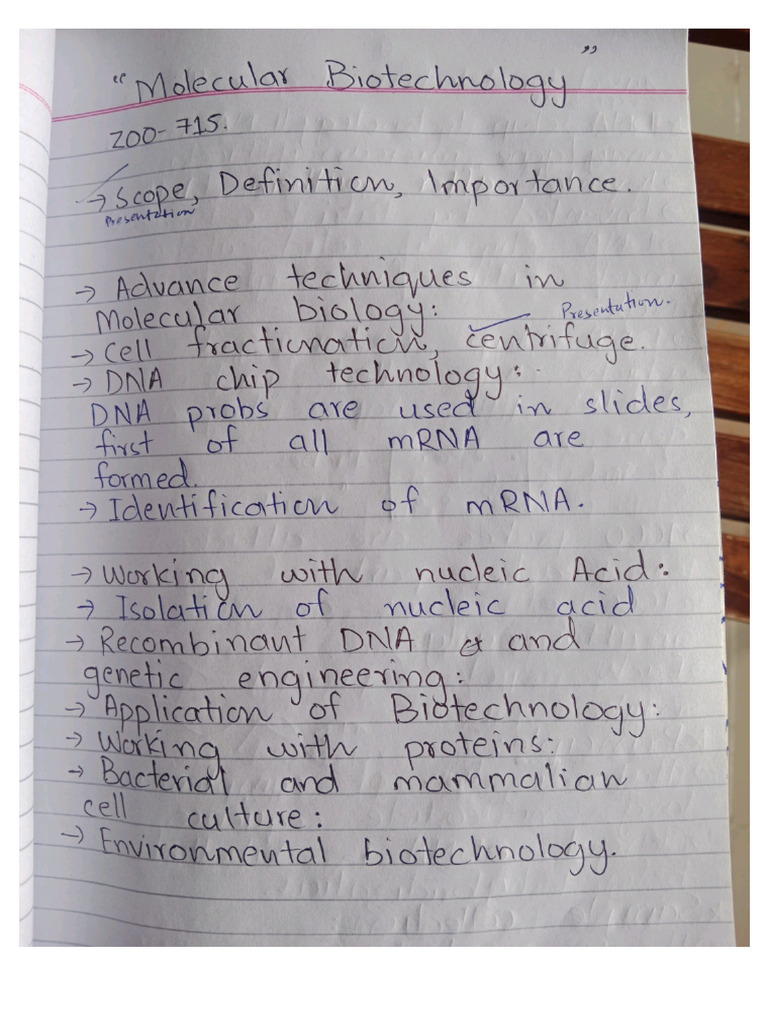 “Molecular Biotechnology”
ZOO-715.
→ Scope, Definition, Importance.
Presentation
→ Advance techniques in
Molecular biology:
Presentation.
→ Cell fractionation, centrifuge.
→ DNA chip technology:
DNA probs are used in slides,
first of all mRNA are
formed.
→ Identification of mRNA.
→ Working with nucleic Acid:
→ Isolation of nucleic acid
→ Recombinant DNA & and
genetic engineering:
→ Application of Biotechnology:
→ Working with proteins:
→ Bacterial and mammalian
cell culture:
→ Environmental biotechnology.